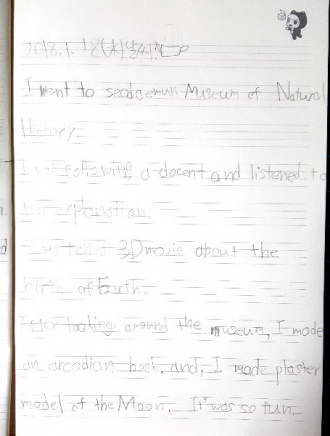 2018. 1. 18(木)
I went to seodaemun Museum of Natural
History.
I was following a docent and listened to
her explanation.
I watched 3D movie about the
birth of Earth.
After looking around the museum, I made
an arcodian book, and, I made plaster
model of the Moon. It was so fun.